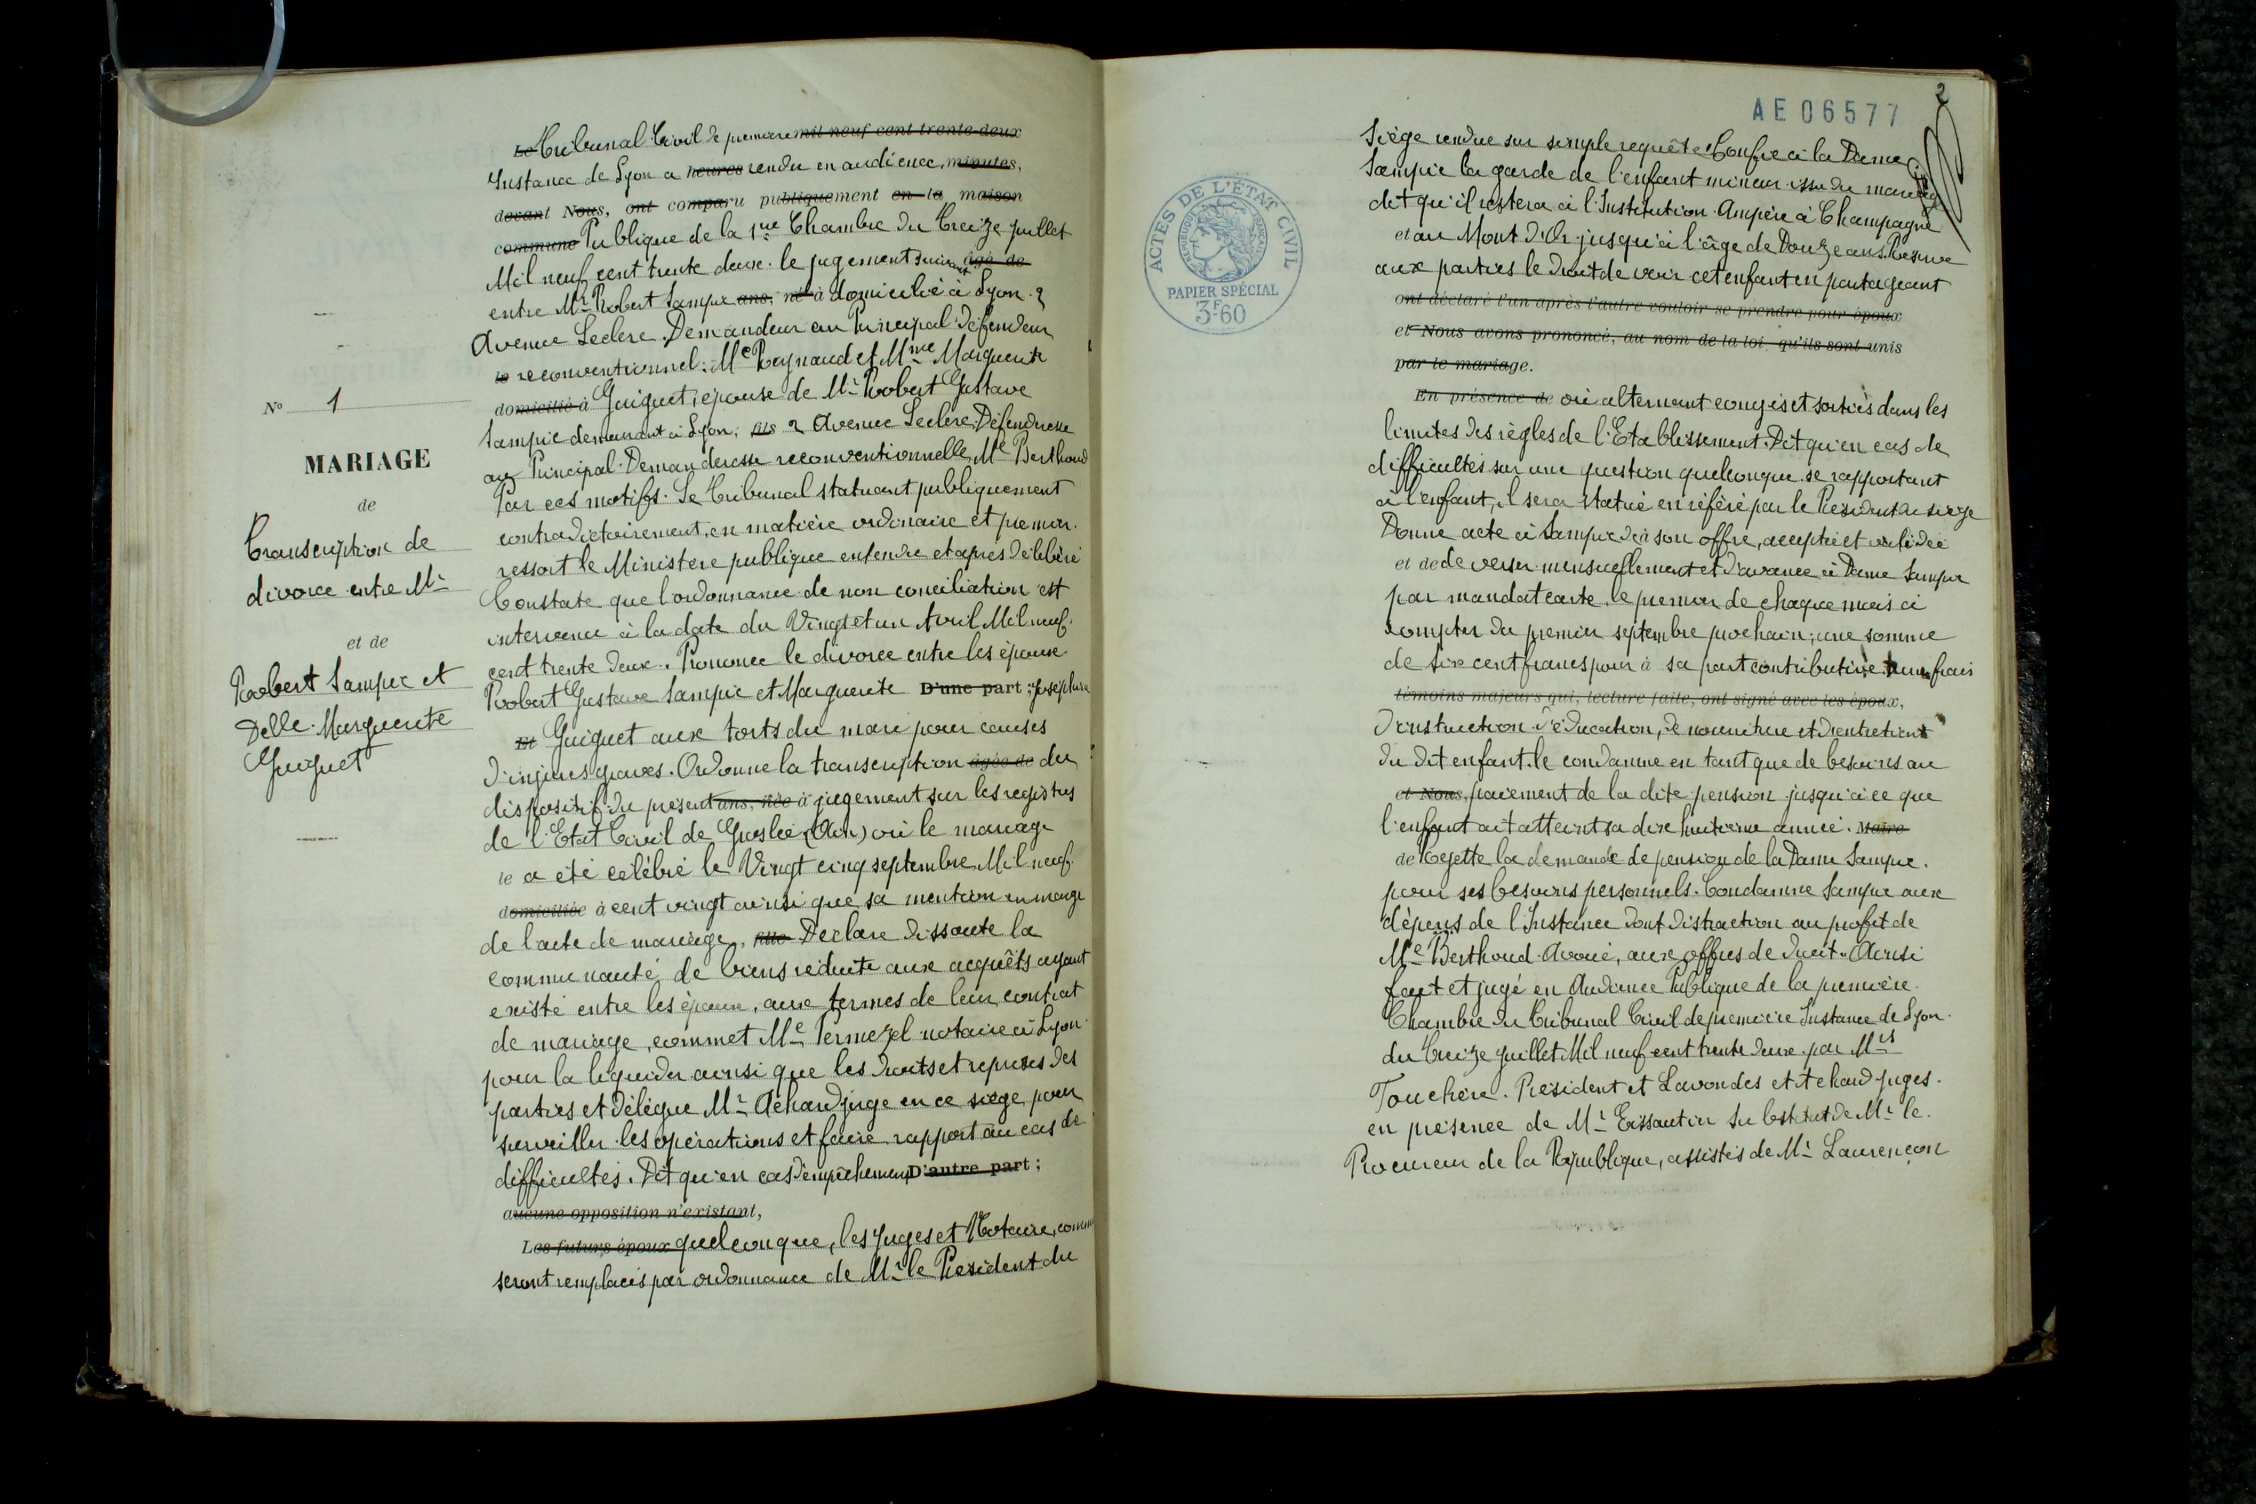 N° 1
MARIAGE
de
Transcription de
divorce entre Mr
et de
Robert Sampic et
Delle Marguerite
Guiguet
Le Tribunal Civil de première mil neuf cent trente-deux
Instance de Lyon a heures rendu en audience, minutes,
devant Nous, ont comparu publiquement en la maison
commune Publique de la 1re Chambre du Treize juillet
Mil neuf cent trente deux. le jugement suivant âgé de
entre Mr Robert Sampic ans, né à domicilié à Lyon. 2
Avenue Leclerc. Demandeur au Principal défendeur
le reconventionnel: Me Reynaud et Mme Marguerite
domicilié à Guiguet, épouse de Mr Robert Gustave
Sampic demeurant à Lyon, fils 2 Avenue Leclerc. Défenderesse
au Principal. Demanderesse reconventionnelle, Me Berthoud
Par ces motifs. Le Tribunal statuant publiquement
contradictoirement, en matière ordinaire et premier.
ressort le Ministère publique entendu et après délibéré
Constate que l'ordonnance de non conciliation est
intervenu à la date du Vingt et un Avril Mil neuf.
cent trente deux. Prononce le divorce entre les époux
Robert Gustave Sampic et Marguerite D'une part; Joséphine
Et Guiguet aux torts du mari pour causes
d'injures graves. Ordonne la transcription âgée de du
dispositif du présent ans, née à jugement sur les registres
de l'Etat Civil de Groslée (Ain) où le mariage
le a été célébré le Vingt cinq septembre Mil neuf.
domiciliée à cent vingt ainsi que sa mention en marge
de l'acte de mariage, fille Déclare dissoute la
communauté de biens réduite aux acquêts ayant
existé entre les époux, aux termes de leur contrat
de mariage, commet Me Permezel notaire à Lyon
pour la liquider ainsi que les droits et reprises des
parties et délègue Mr Achard juge en ce siège pour
surveiller les opérations et faire rapport au cas de
difficultés. Dit qu'en cas d'empêchement D'autre part;
aucune opposition n'existant,
Les futurs époux quelconque, les juges et Notaire, commis
seront remplacés par ordonnance de Mr le Président du
AE 06577
2
ACTES DE L'ÉTAT CIVIL
RÉPUBLIQUE FRANÇAISE
PAPIER SPÉCIAL
3F60
Siège rendue sur simple requête. Confie à la Dame
Sampic la garde de l'enfant mineur issu du mariage
dit qu'il restera à l'Institution Ampère à Champagne
et au Mont d'Or jusqu'à l'âge de Douze ans. Réserve
aux parties le droit de voir cet enfant en partageant
ont déclaré l'un après l'autre vouloir se prendre pour époux
et Nous avons prononcé, au nom de la loi, qu'ils sont unis
par le mariage.
En présence de où alternant congés et sorties dans les
limites des règles de l'Etablissement. Dit qu'en cas de
difficultés sur une question quelconque se rapportant
à l'enfant, il sera statué en référé par le Président du siège
Donne acte à Sampic de son offre, acceptée et validée
et de de verser mensuellement et d'avance à Dame Sampic
par mandat carte le premier de chaque mois à
compter du premier septembre prochain, une somme
de six cent francs pour à sa part contributive aux frais
témoins majeurs qui, lecture faite, ont signé avec les époux,
d'instruction d'éducation, de nourriture et d'entretient
du dit enfant. le condamne en tant que de besoins au
et Nous, paiement de la dite pension jusqu'à ce que
l'enfant ait atteint sa dix huitième année. Maire
de Rejette la demande de pension de la Dame Sampic.
pour ses besoins personnels. Condamne Sampic aux
dépens de l'Instance dont distraction au profit de
Me Berthoud Avoué, aux offres de droit. Ainsi
fait et jugé en Audience Publique de la première.
Chambre du Tribunal Civil de première Instance de Lyon.
du Treize juillet Mil neuf cent trente deux par Mrs
Touchère. Président et Lavondes et Achard juges.
en présence de Mr Eissautier Substitut de Mr le.
Procureur de la République, assistés de Mr Laurençon